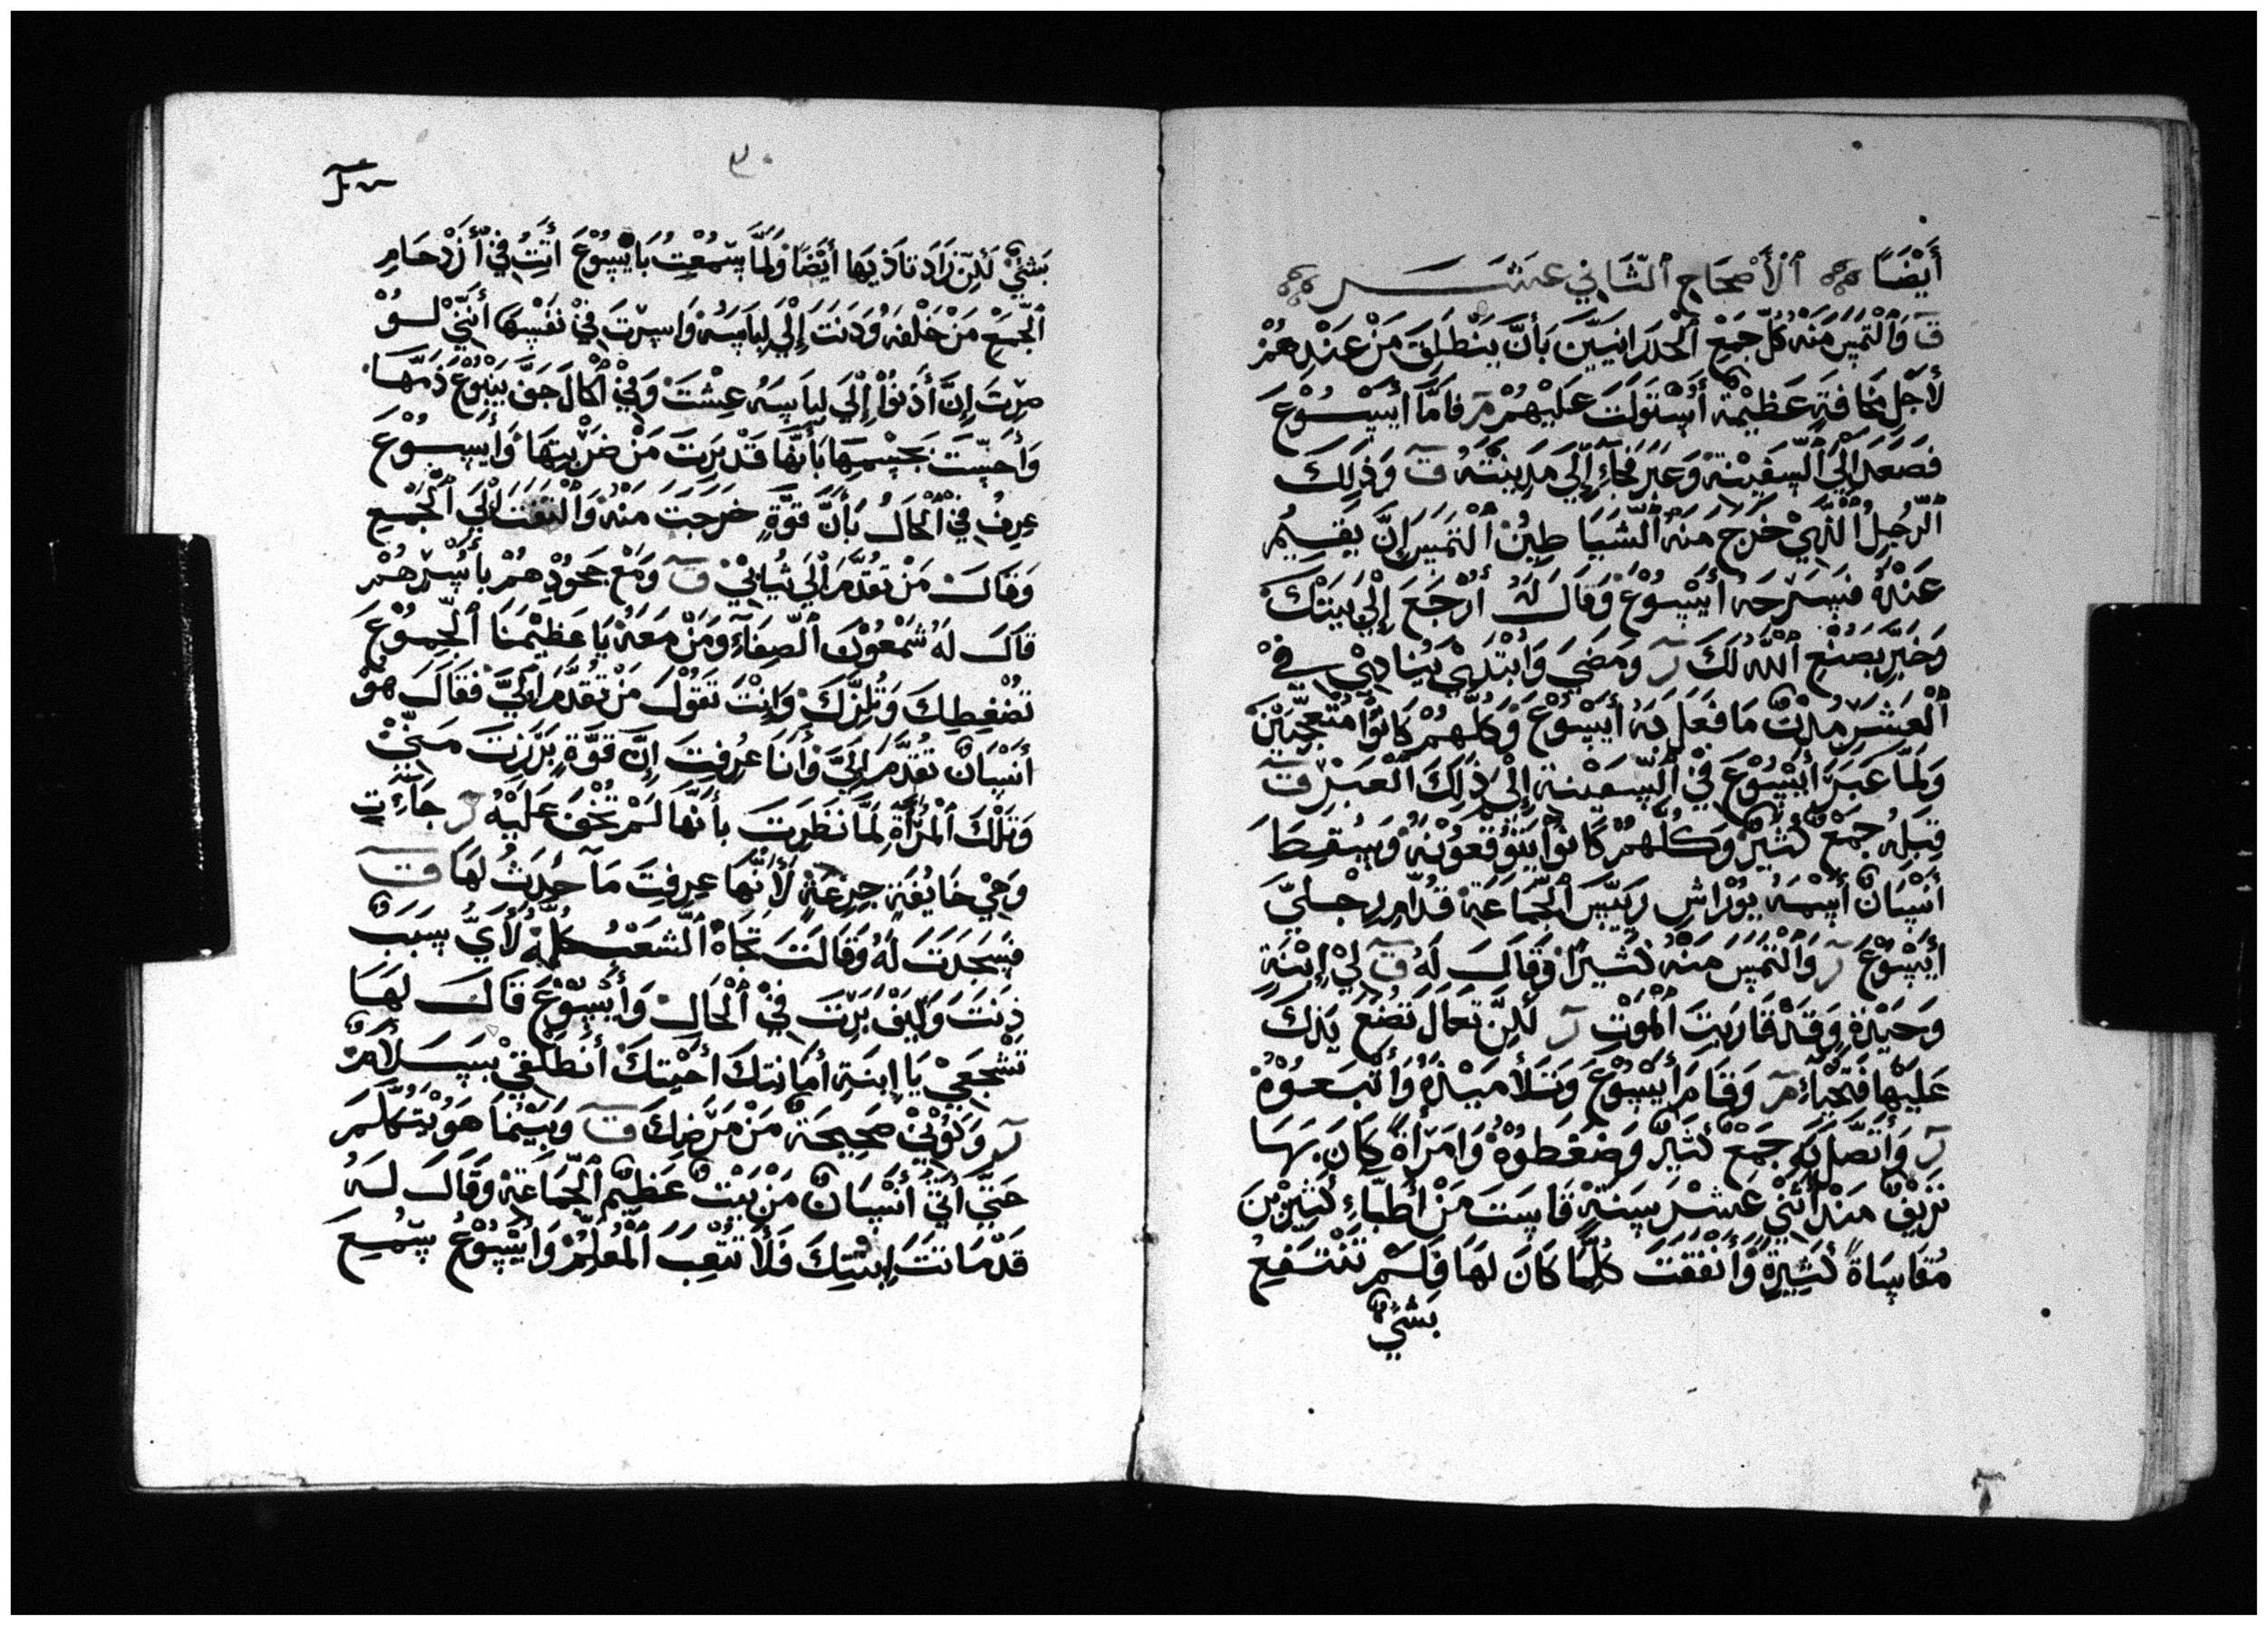 أَيْضًا ٱلْأَصْحَاحِ ٱلثَّانِي عَشَر
ق وَٱلْتَمَسَ مَنْه كُلّ جَمِيْعِ ٱلْجَدَرَانِيِّيْنَ بَأَنَّ يَنْطَلَقَ مَنْ عَنْدِهُمْ
لأَجْل مَخَافَةٍ عَظِيْمَة أَسْتَوَلَتَ عَلَيْهُمْ مَر فَامَّا أَيْسُوْعَ
فَصَعَدَ إِلَي ٱلسَّفِيْنَة وَعَبَرَ فَجَاءَ إِلَّي مَدِيْنَتْهُ ق وَذَلِكَ
ٱلْرَجُلُ ٱلَّذِيْ خَرَجَ مَنْهُ ٱلْشَيَا طِيْنُ ٱلْتَمَسَ إِنَّ يَقِيمُ
عَنْدَهُ فَسَرَحَهُ أَيْسُوْعَ وَقَالَ لَهُ أَرْجَعَ إِلَي بَيْتَكَ
وَخَبِّرَ بَصَنْعِ ٱللَّهُ لَكَ ر وَمَضَيَ وَابْتَدَيْ يُنَادِيْ فِيْ
ٱلْعَشَرَ مُدْنٍ مَا فَعَلَ بَهُ أَيْسُوْعَ وَكُلَّهُمْ كَانُوْا مُتَعَجِّبَيْنَ
وَلَمَّا عَبَرَ أَيْسُوْعَ فِيْ ٱلسَّفِيْنَةِ إِلْيَ ذَلِكَ ٱلْعَبْرَ ق
قَبِلَه جَمْعٌ كَثِيْرٌ وَكُلُّهُمْ كَانُوْا يَتَوَقَعُوْنَهُ وَسَقِطَ
أَنْسَانٌ أَسْمَهُ يُوْرَاشِ رَيِّيس ٱلْجَّمَاعَة قُدَّام رِجْلَيّ
أَيْسُوْعَ ر وَٱلْتَمَسَ مَنْهُ كَثِيْرًا وَقَالَ لَهُ ق لِيْ إِبْنَةٍ
وَحَيْدَة وَقَدْ قَارَبَتَ ٱلْمَوْتِ ر لَكِنَّ تَعَالَ تَضَعَ يَدَكَ
عَلَيْهَا فَتَحْيَاءِ مَر وَقَامَ أَيْسُوْعَ وَتَلَامَيْذَهُ وَأَتْبَعُوْهُ
ر وَأَتَصَّلَ بَهِ جَمْعٌ كَثَيْرٌ وَضَغَطُوْهُ وَامَرَأَةٌ كَانَ بَهَا
نَزِيْفٌ مَنْذُ أَثَنْيْ عَشَرَ سَنَةٍ قَاسَتَ مَنْ أَطْبَّاءِ كَثِيْرَيْنَ
مُقَاسَاةً كَثِيْرَةً وَأَنْفَقَتَ كُلَّمَا كَانَ لَهَا فَلَمْ تَنْتَفِعُ
بَشَيْ
٣٠
بَشَيْ لَكِنّ زَادَ تَاذِيْهَا أَيْضًا وَلَمَّا سَمْعَتُ بَايْسُوْعَ أَتَتُ فِيْ أَزْدحَامِ
ٱلْجَّمِعْ مَنْ خَلْفَهِ وَدَنَتَ إِلَي لِبَاسَهُ وَاسَرّتَ فِيْ نَفْسَهَا أَنَّنِيْ لَوْ
صِرّتَ إِنَّ أَدْنُوْا إِلْيَ لِبَاسِهُ عِشْتَ وَفِيْ ٱلْحَالَ جَفّ يَنْبُوْعَ دَمّهَا
وَأَحَسَّتَ بَجَسْمِهَا بَأَنَّهَا قَدْ بَرَتَ مَنْ ضَرْبِتهَا وَأَيْسُوْعَ
عِرِفَ فِيْ ٱلْحَالُ بَأَنَّ قوَّةٍ خَرَجَتَ مَنْهُ وَٱلْتَفَتَ إِلَيَ ٱلْجَّمِيِع
وَقَالَ مَنْ تَقَدَّمَ الَيَ ثِيَابِيْ ق وَمَعْ جُحُوْدِهُمْ بأَسْرَهُمْ
قَالَ لَهُ شَمْعُوْنَ ٱلْصِّفَاءِ وَمَنْ مَعَهُ يَا عَظَيْمَنَا ٱلْجَّمُوْعَ
تَضْغِطِكَ وَتُلِزّكَ وَانْتَ تَقُوْلَ مَنْ تَقَدَّمَ الَيَّ فَقَالَ هُوْ
أَنْسَانٌ تَقَدَّمَ الَيَّ وَأَنَا عَرَفَتَ إِنَّ قوَّةٍ بَرَزَتَ مَنّيْ
وَتَلْكَ ٱلْمَرْأَةِ لَمَّا نَظَرِتَ بأَنَّهَا لَمْ تَخْفَ عَلَيْهُ ر جَاءَتِ
وَهِيْ خَايُفَةٍ جِزِعَةٍ لَأَنَّهَا عِرِفِتَ مَآ حَدَثُ لَهَا ق
فَسَجَدَتَ لَهُ وَقَالَتَ تَجَاهُ ٱلشَّعَبْ كُلَّهُ لأَيَّ سَبَبٌ
دَنَتَ وَكَيْفَ بَرَتَ فِيْ ٱلْحَالِ وَأَيْسُوْعَ قَالَ لَهَا
تَشْجَعِيْ يَا إِبنَةِ أَمَانتكَ أَحَيْتكَ أَنطَلْقِيْ بِسَلَامٌ
ر وَكُوْنِيْ صَحِيحَةٌ مَنْ مَرَضِكَ ق وَبَيْنَمَا هَوُ يَتَكَلَّمَ
حَتَّيَ أَتَيَ أَنْسَانٌ مَنْ بَيْتٌ عَظِيْم ٱلْجَّمَاعَة وَقَالَ لَهُ
قَدْ مَاتَتَ إِبنتِكَ فَلَأ تَتَّعِبَ ٱلْمُعَلِّمْ وَايْسُوْعُ سَمِعَ